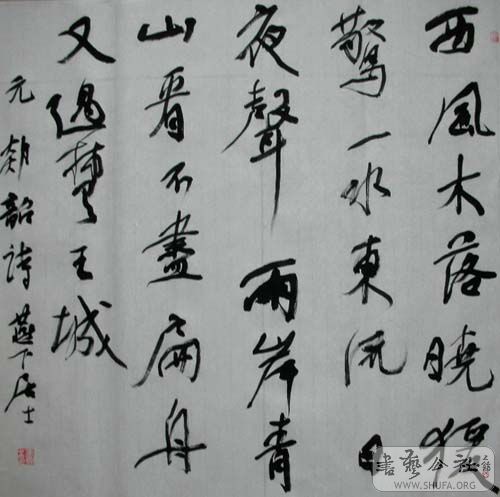 西風木落曉猿
驚一水東流日
夜聲兩岸青
山看不盡扁舟
又過楚王城
元郯韶詩燕下居士
書藝公社
WWW.SHUFA.ORG